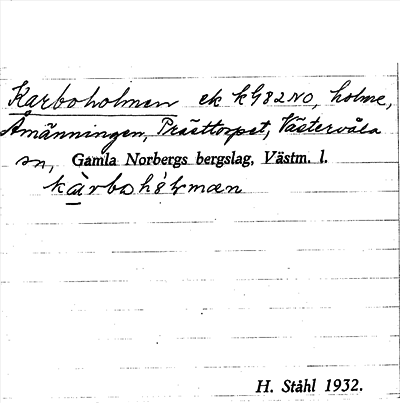 Karboholmen ek kG82NO, holme,
Åmänningen, Prästtorpet, Västervåla
sn, Gamla Norbergs bergslag, Västm. l.
H. Ståhl 1932.